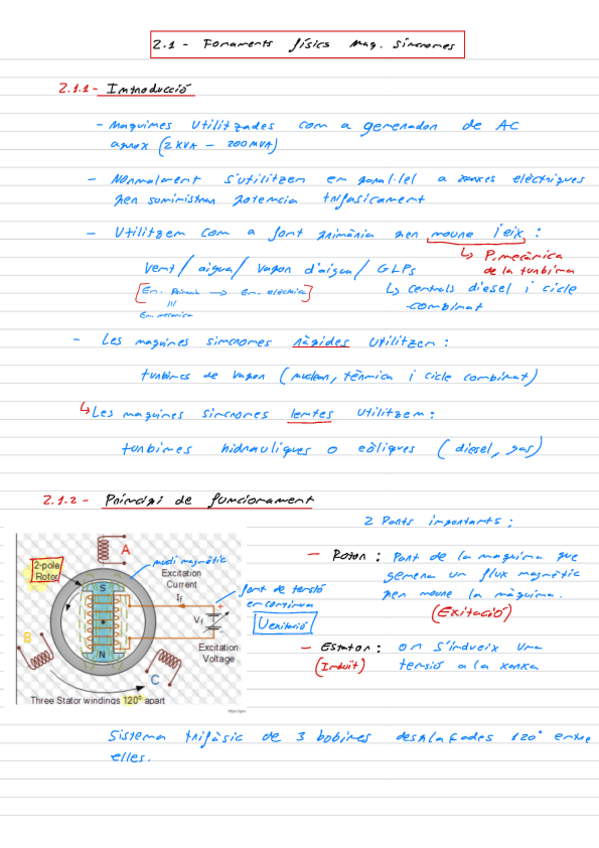 2.1 - Fonaments físics maq. síncrones
2.1.1 - Introducció
- Maquines utilitzades com a generador de AC
aprox (2 KVA - 200MVA)
- Normalment s'utilitzen en paral·lel a xarxes elèctriques
per suministrar potencia trifasicament
- Utilitzem com a font primària per moure l'eix :
↳ P. mecànica
de la turbina
Vent / aigua / vapor d'aigua / GLPs
↳ centrals diesel i cicle
combinat
[En. Primaria → En. elèctrica]
En. mecanica
- Les maquines sincrones ràpides utilitzen :
turbines de vapor (nuclear, tèrmica i cicle combinat)
↳ Les maquines sincrones lentes utilitzem :
turbines hidrauliques o eòliques (diesel, gas)
2.1.2 - Principi de funcionament
2 Parts importants :
- Rotor : Part de la maquina que
genera un flux magnètic
per moure la màquina.
(Exitació)
- Estator : on s'indueix una
(Induït) tensió a la xarxa
A
2-pole
Rotor
nucli magnètic
Excitation
Current
If
S
font de tensió
en continua
Uexitació
+
Vf
-
B
N
Excitation
Voltage
C
Three Stator windings 120° apart
Sistema trifàsic de 3 bobines desplaçades 120° entre
elles.